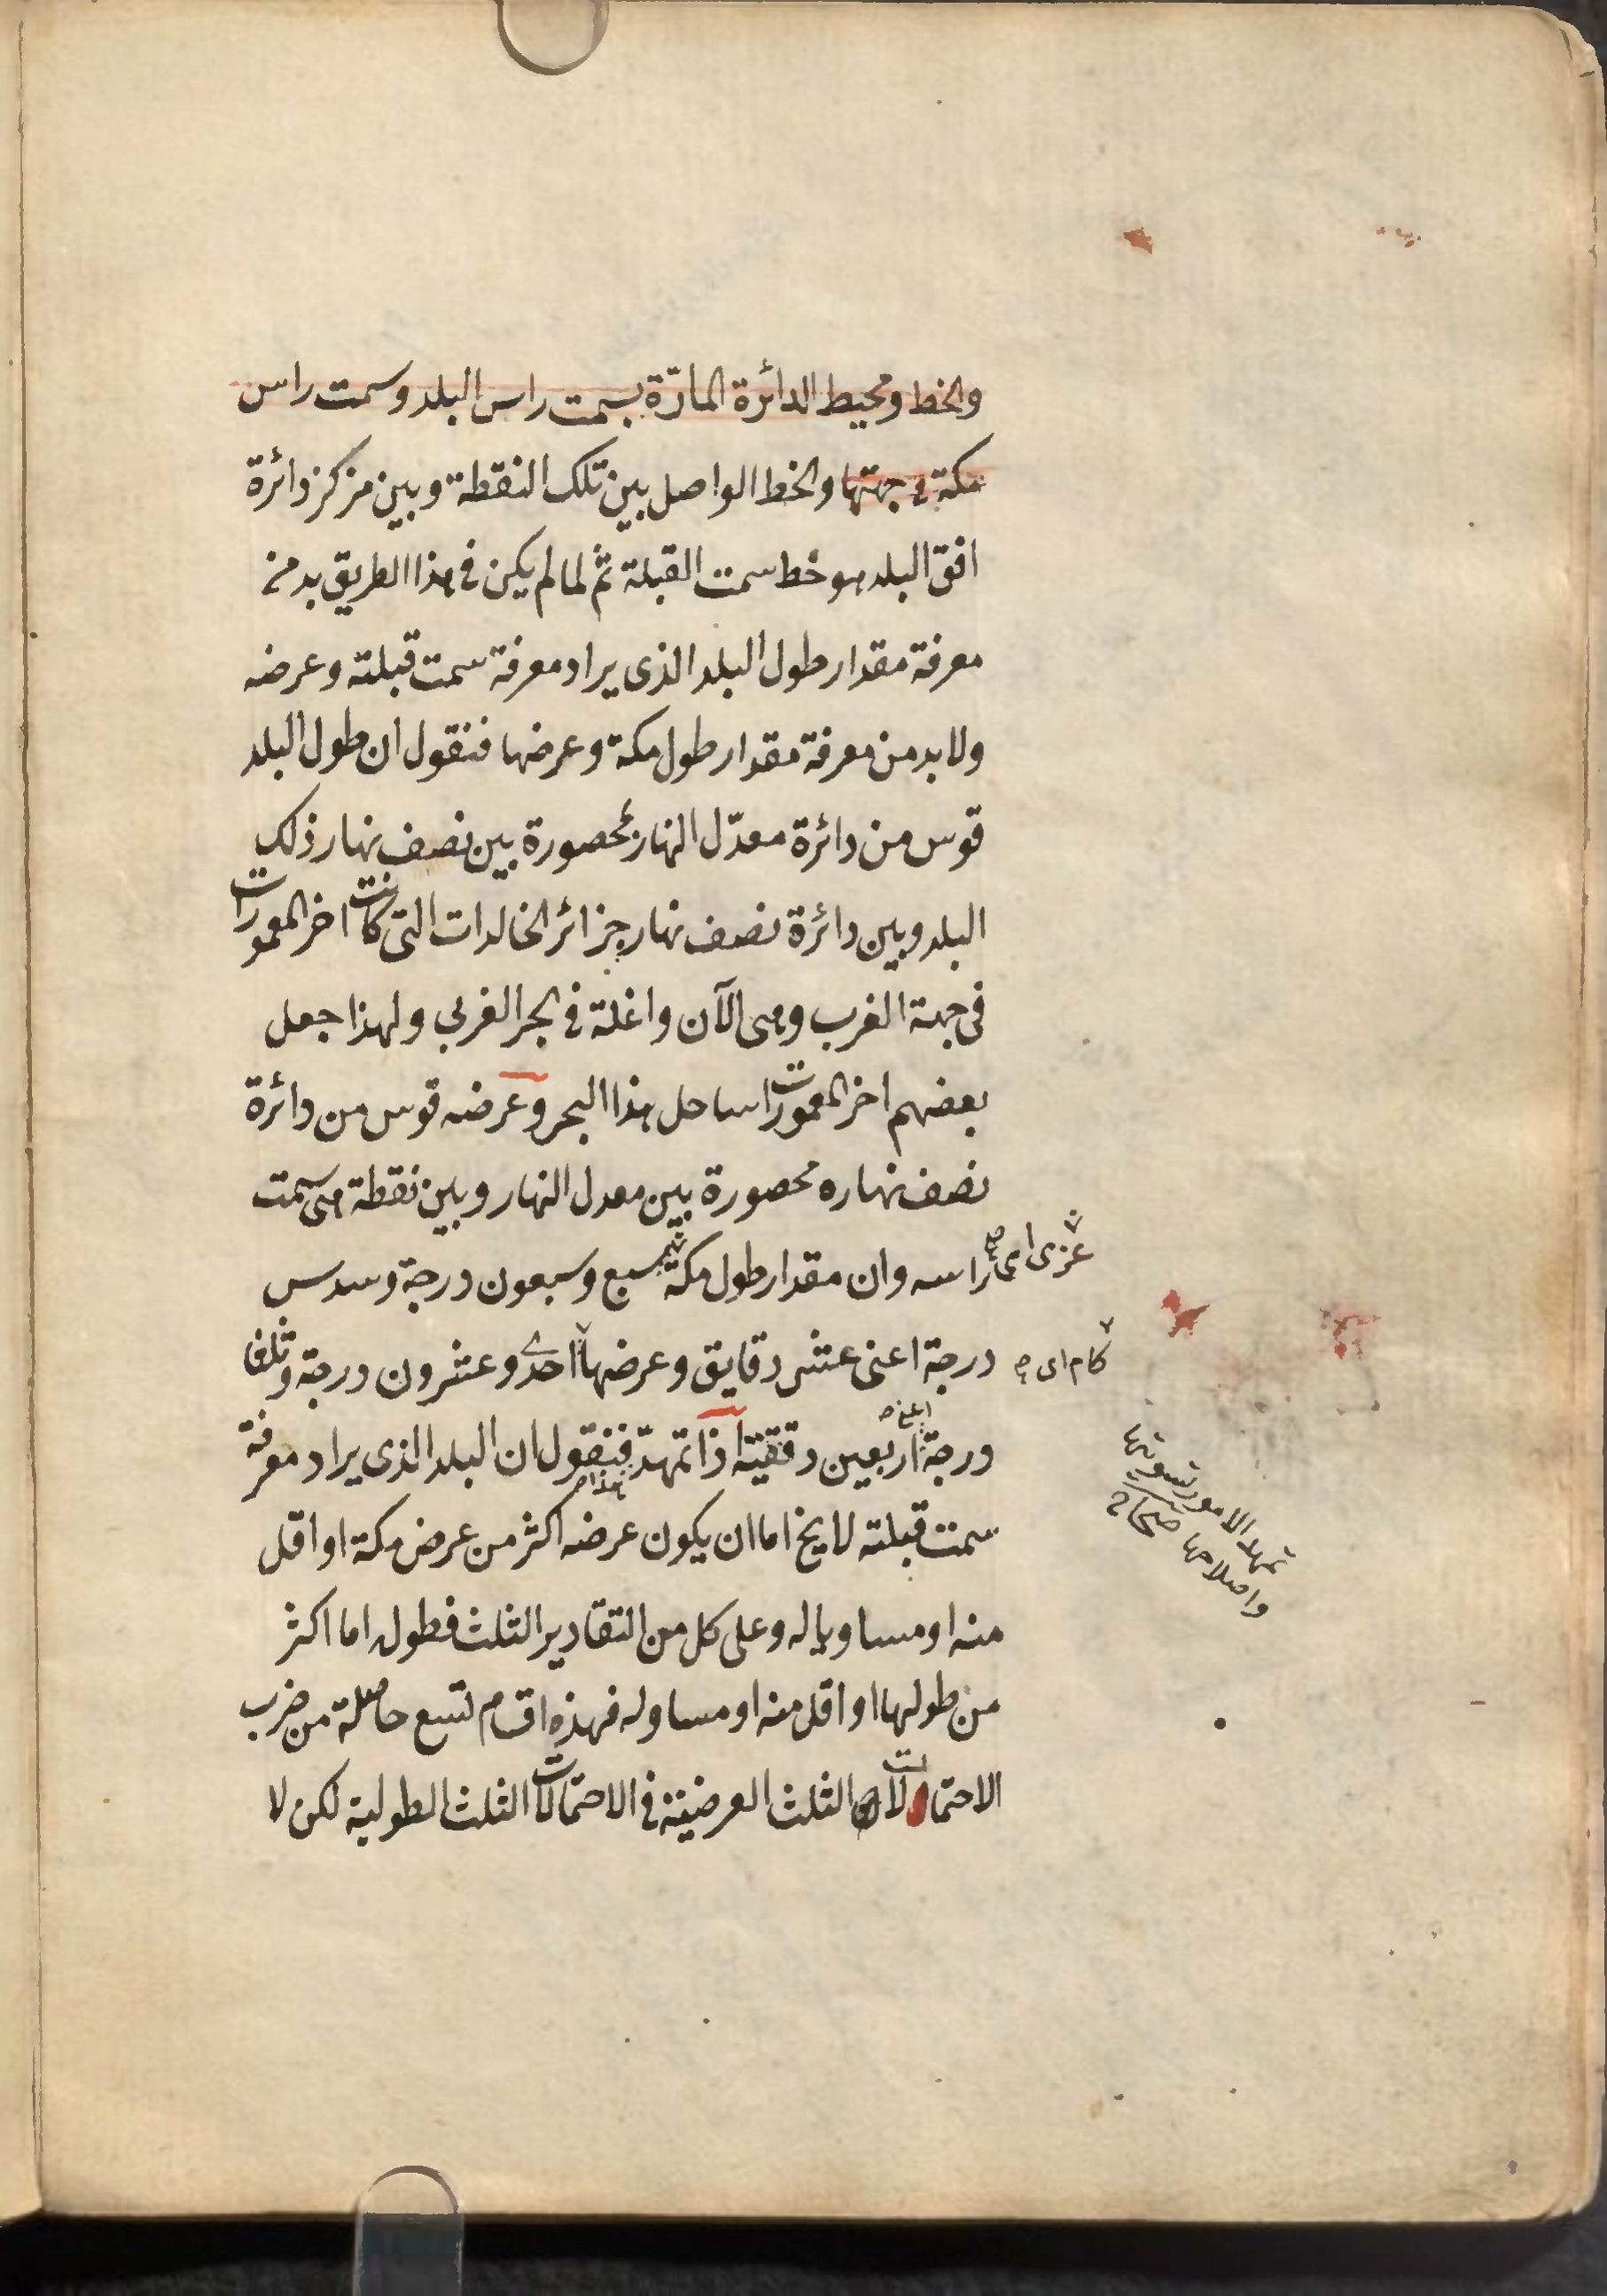 والخط ومحيط الدائرة المارّة بسمت راس البلد وسمت راس
مكة فى جهتها والخط الواصل بين تلك النقطة وبين مركز دائرة
افق البلد هو خط سمت القبلة ثم لما لم يكن فى هذا الطريق بد من
معرفة مقدار طول البلد الذى يراد معرفة سمت قبلته وعرضه
ولا بد من معرفة مقدار طول مكة وعرضها فنقول ان طول البلد
قوس من دائرة معدّل النهار محصورة بين نصف نهار ذلك
البلد وبين دائرة نصف نهار جزائر الخالدات التى كانت اخر المعمورات
فى جهة الغرب وهى الآن واغلة فى البحر الغربى ولهذا جعل
بعضهم اخر المعمورات ساحل هذا البحر وعرضه قوس من دائرة
نصف نهاره محصورة بين معدل النهار وبين نقطة هى سمت
راسه وان مقدار طول مكة سبع وسبعون درجة وسدس
درجة اعنى عشر دقايق وعرضها احدى وعشرون درجة وثلثا
درجة اعنى اربعين دقيقة اذا تمهد هذا فنقول ان البلد الذى يراد معرفة
سمت قبلته لا يخ اما ان يكون عرضه اكثر من عرض مكة او اقل
منه او مساويا له وعلى كل من التقادير الثلث فطوله اما اكثر
من طولها او اقل منه او مساو له فهذه اقسام تسع حاصلة من ضرب
الاحتمالات الثلث العرضية فى الاحتمالات الثلث الطولية لكن لا
عزى اى
كام اى
تمهد الامور تسويتها
واصلاحها صحاح